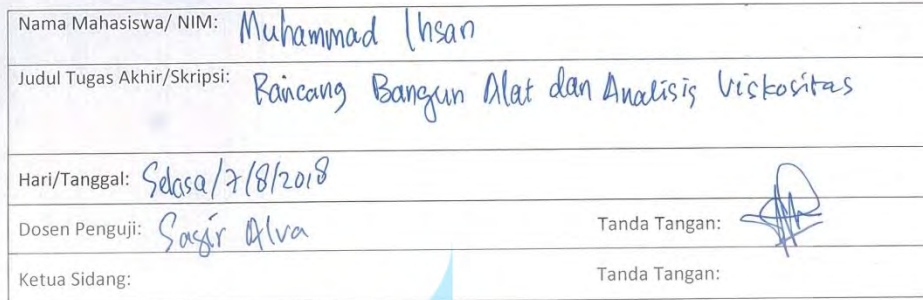 Nama Mahasiswa/ NIM: Muhammad Ihsan
Judul Tugas Akhir/Skripsi: Rancang Bangun Alat dan Analisis Viskositas
Hari/Tanggal: Selasa/7/8/2018
Dosen Penguji: Sagir Alva Tanda Tangan:
Ketua Sidang: Tanda Tangan: